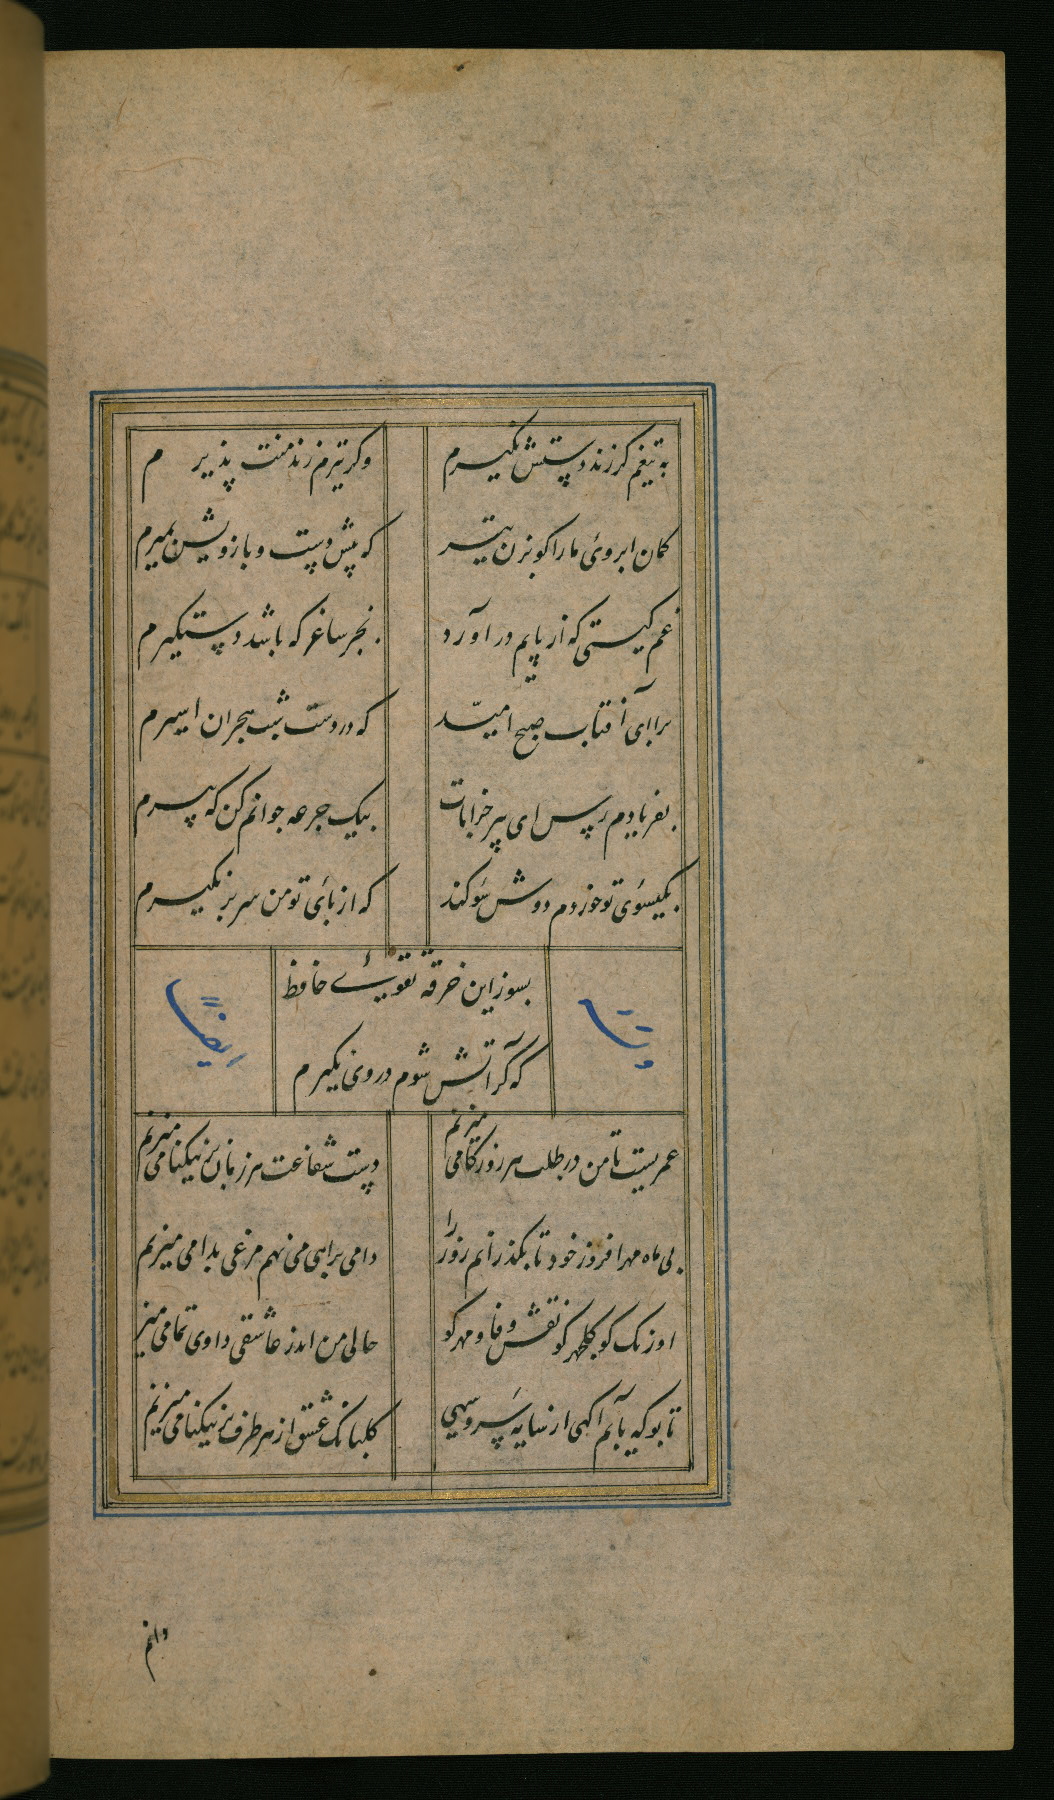 به تیغم کر زند دستش نکیرم
وکر تیرم زند منت پذیرم
کمان ابروئی ما را کو بزن تیر
که پیش دست و بازویش بمیرم
غم کیتی که از پایم در آورد
بجز ساغر که باشد دستکیرم
برا ای آفتاب صبح امید
که در دست شب هجران اسیرم
بفریادم رس ای پیر خرابات
بیک جرعه جوانم کن که پیرم
بکیسوئی تو خوردم دوش سوکند
که از پائی تو من سر بر نکیرم
بسوز این خرقه تقوی حافظ
که کر آتش شوم در وی نکیرم
ایضاً
عمریست تا من در طلب هر روز کامی میزنم
دست شفاعت هر زمان بر نیکنامی میزنم
بی ماه مهر افروز خود تا بکذرانم روز را
دامی براهی می نهم مرغی بدامی میزنم
اورنک کو کلچهر کو نقش وفا و مهر کو
حالی من اندر عاشقی داوی تمامی میز
تا بو که یابم آکهی از سایه سرو سهی
کلبانک عشق از هر طرف بر نیکنامی میزنم
دانم